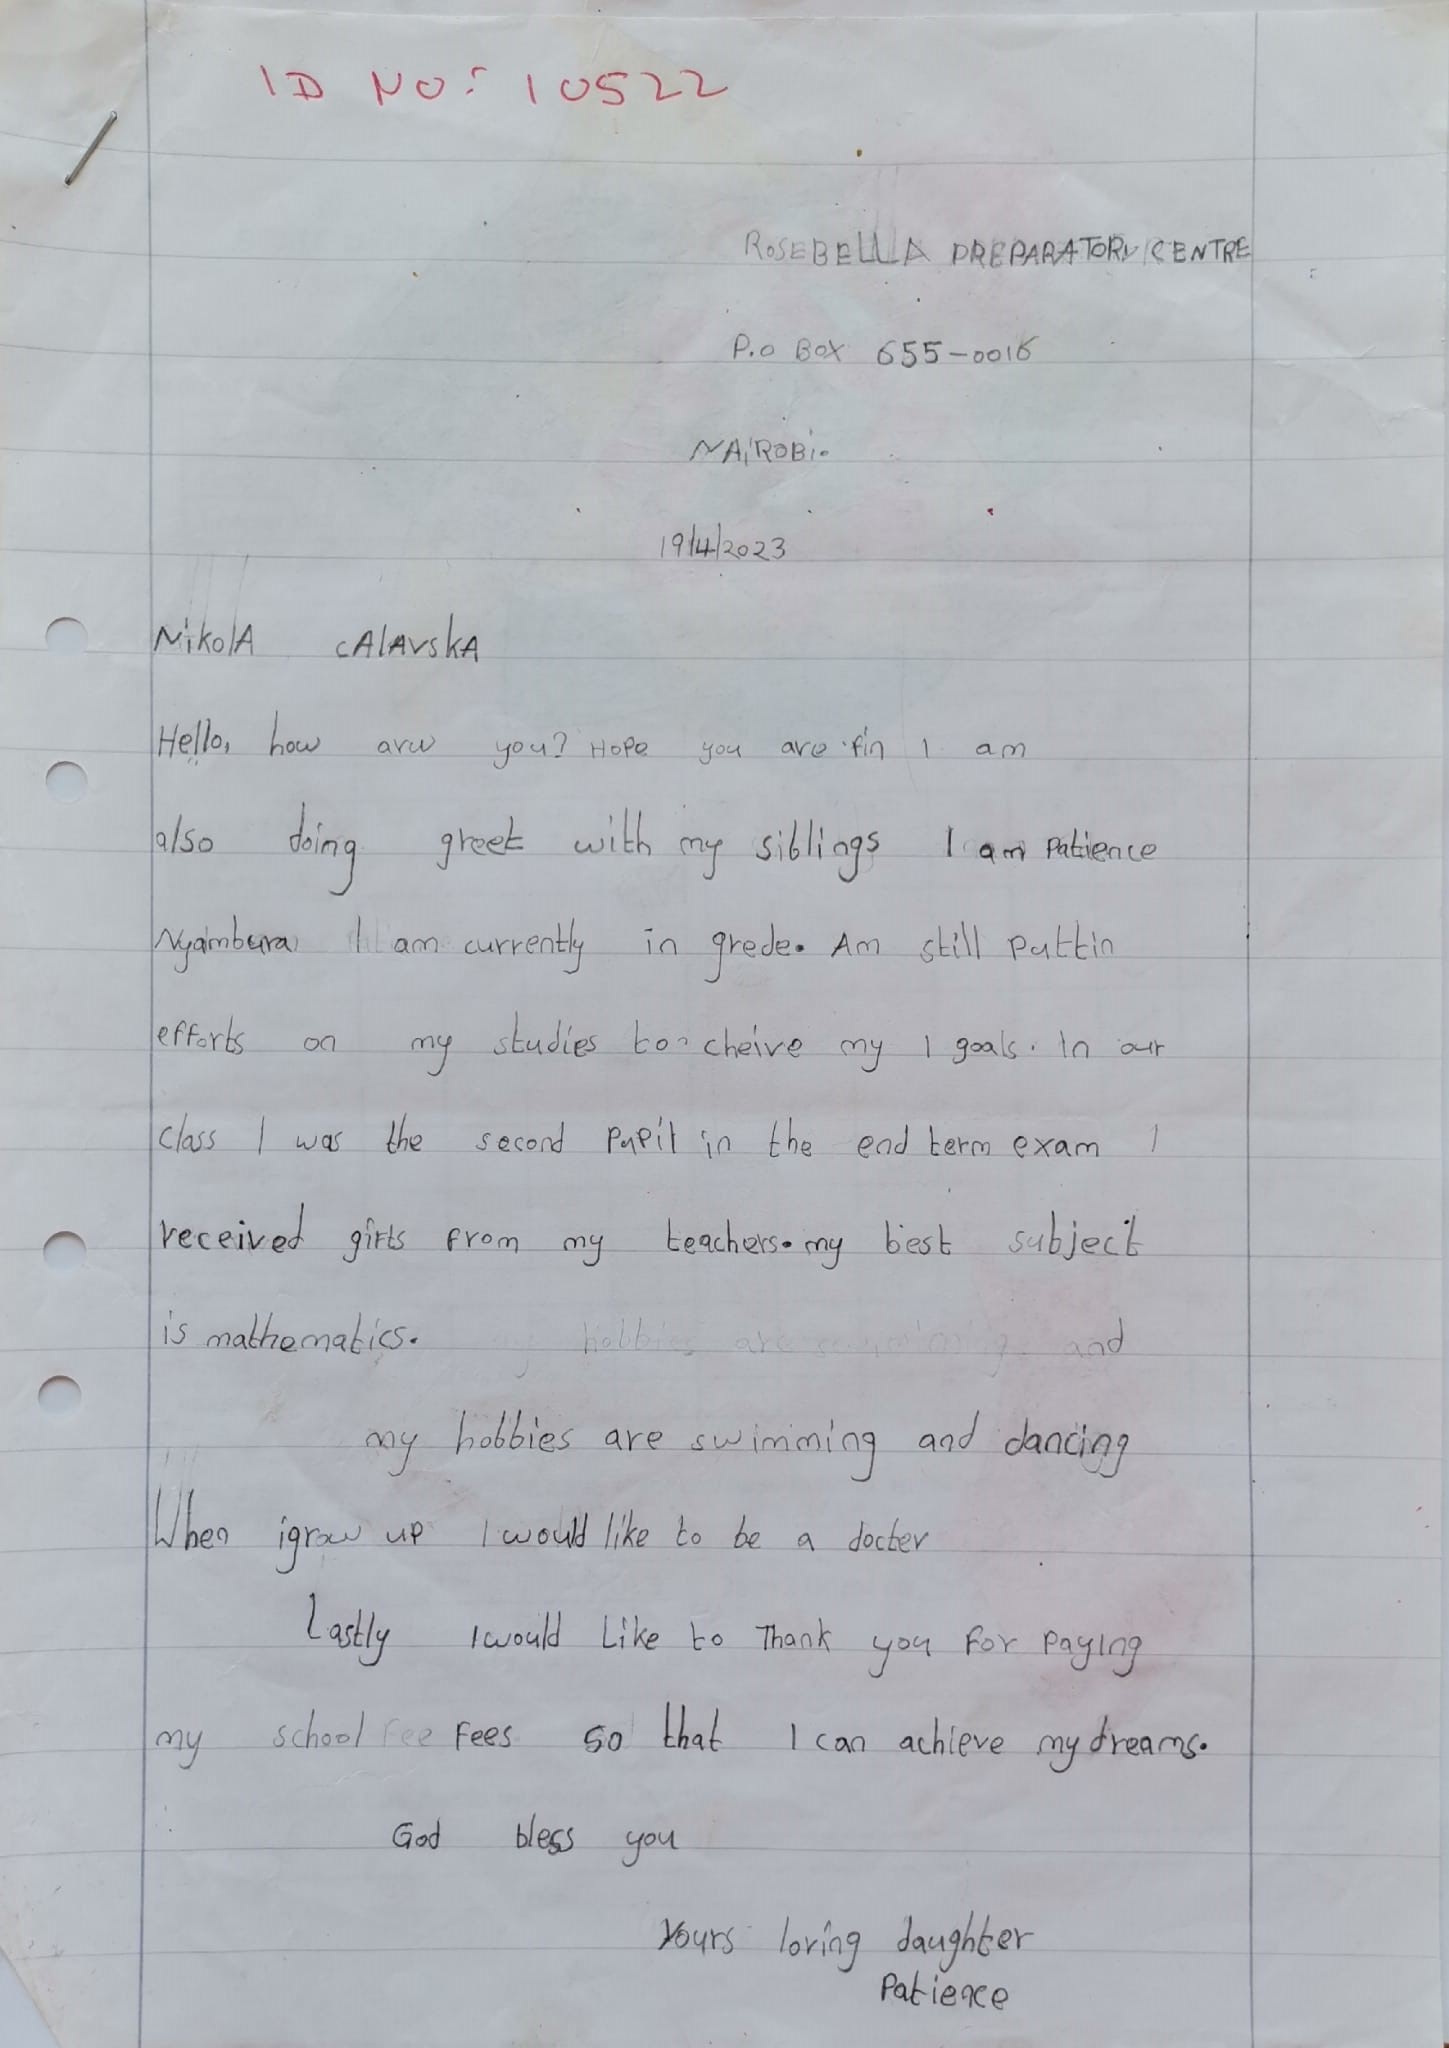 ID NO: 10522
ROSEBELLA PREPARATORY CENTRE
P.o BOX 655-0016
NAiROBi.
19/4/2023
NikolA cAlAvskA
Hello, how arw you? Hope you are fin I am
also doing greet with my siblings I am Patience
Nyambura I am currently in grede. Am still puttin
efforts on my studies to cheive my I goals. In our
class I was the second pupil in the end term exam I
received gifts from my teachers. my best subject
is mathematics. my hobbies are swimming and
my hobbies are swimming and dancing
When igrow up I would like to be a docter
Lastly I would Like to Thank you for paying
my school Fee Fees so that I can achieve my dreams.
God bless you
Yours loving daughter
Patience